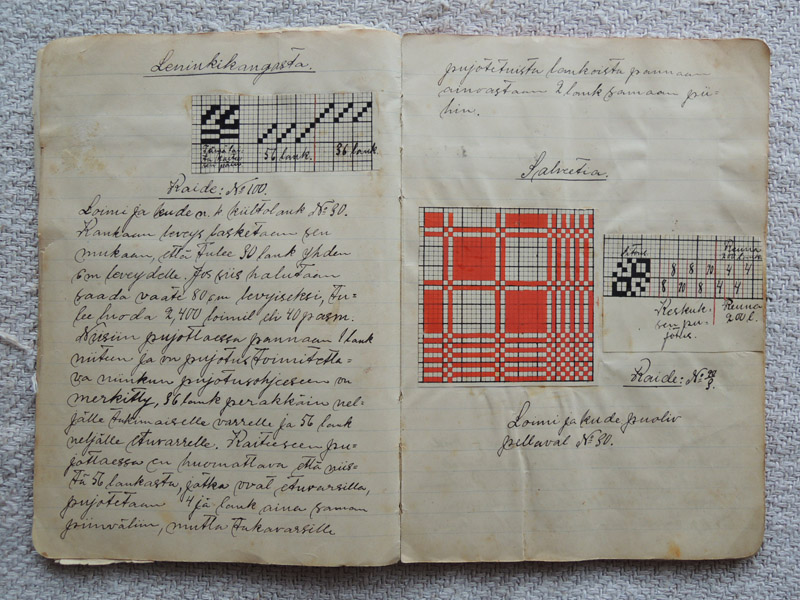 Leninkikangasta.
56 lank. 36 lank.
Kaide: No 100.
Loimi ja kude n. k kiiltolank No 30.
Kankaan leveys lasketaan sen
mukaan, että tulee 30 lank yhden
sm leveydelle. Jos siis halutaan
saada vaate 80 sm levyiseksi, tu-
lee luoda 2400 loimil eli 40 pasm.
Niisiin pujottaessa pannaan 1 lank
niiteen ja on pujotus toimitetta-
va niinkun pujotusohjeeseen on
merkitty, 36 lank perakkäin nel-
jälle takimaiselle varrelle ja 56 lank
neljälle etuvarrelle. Kaiteeseen pu-
jottaessa on huomattava että niis-
tä 56 lankasta, jotka ovat etuvarsilla,
pujotetaan 4 jä lank aina saman
piinväliin, mutta takavarsille
pujotetuista lankoista pannaan
ainoastaan 2 lank samaan pii-
hin.
Salvetia.
Reuna
200 l.
8 8 20 4 4
8 10 8 4 4
Keskuk-
sen pu-
jotus.
Reuna
200 l.
Kaide: No
Loimi ja kude puoliv
pellavat No 30.